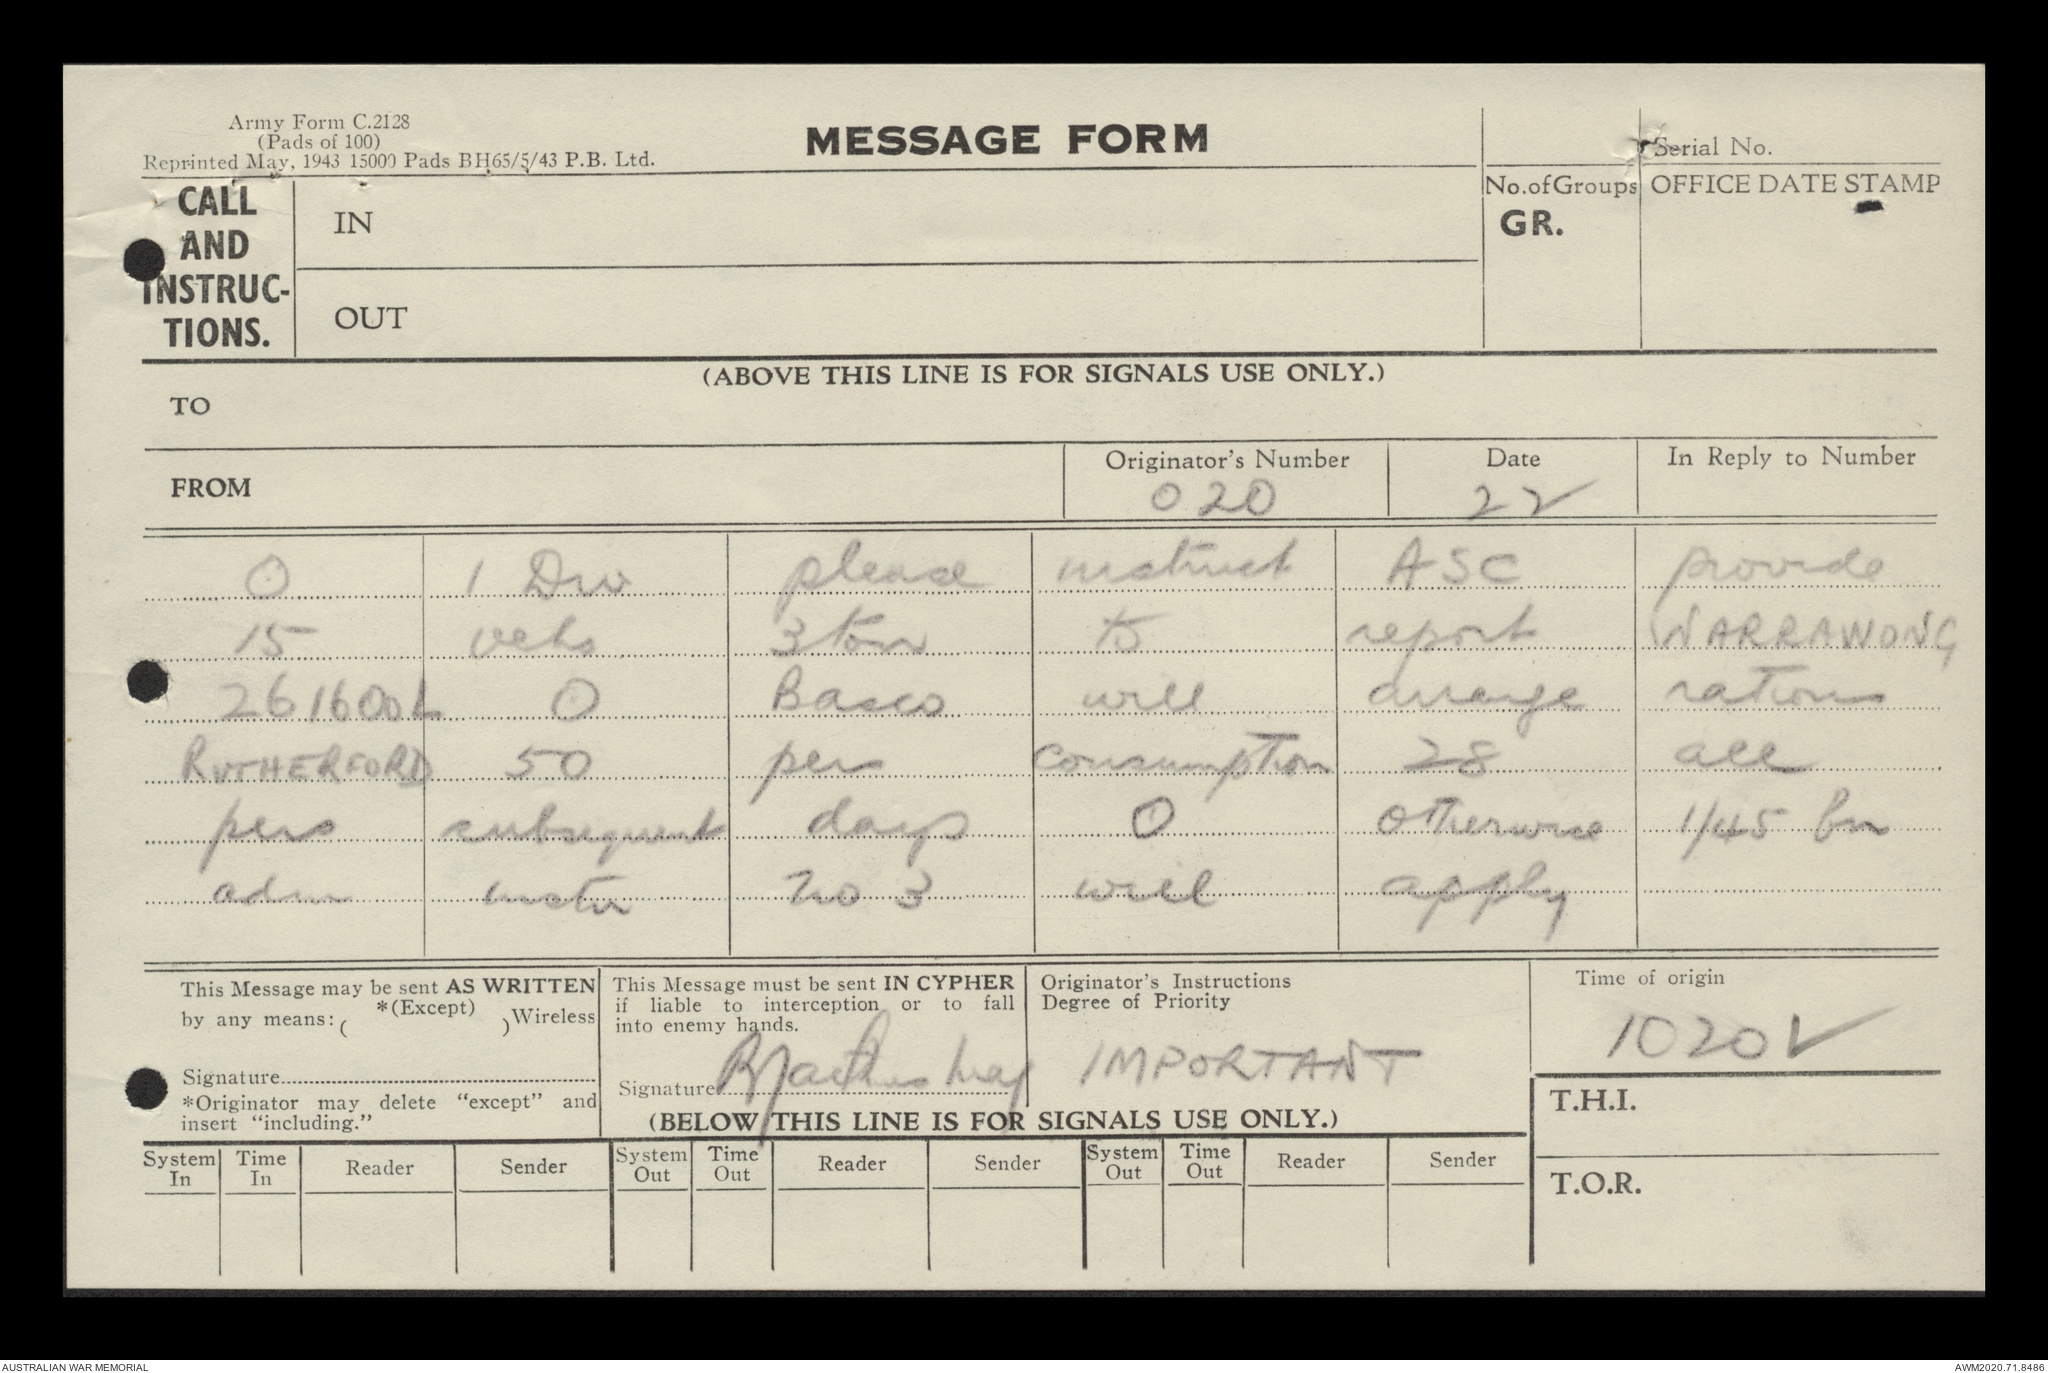 Army Form C.2128
(Pads of 100)
Reprinted May, 1943 15000 Pads BH65/5/43 P.B. Ltd.
MESSAGE FORM
Serial No.
CALL AND INSTRUC-TIONS.
IN
No.of Groups
GR.
OFFICE DATE STAMP
OUT
(ABOVE THIS LINE IS FOR SIGNALS USE ONLY.)
TO
FROM
Originator's Number
020
Date
22
In Reply to Number
O 1 Div please instruct ASC provide
15 vehs 3 ton to report WARRAWONG
261600L O Basco will arrange rations
RUTHERFORD 50 pers consumption 28 all
pers subsequent days O otherwise 1/45 Bn
adm instn no 3 will apply
This Message may be sent AS WRITTEN
by any means: ( *(Except) ) Wireless
Signature
*Originator may delete "except" and
insert "including."
This Message must be sent IN CYPHER
if liable to interception or to fall
into enemy hands.
Signature
Originator's Instructions
Degree of Priority
IMPORTANT
Time of origin
1020
(BELOW THIS LINE IS FOR SIGNALS USE ONLY.)
T.H.I.
T.O.R.
System In Time In Reader Sender System Out Time Out Reader Sender System Out Time Out Reader Sender
AUSTRALIAN WAR MEMORIAL
AWM2020.71.8486